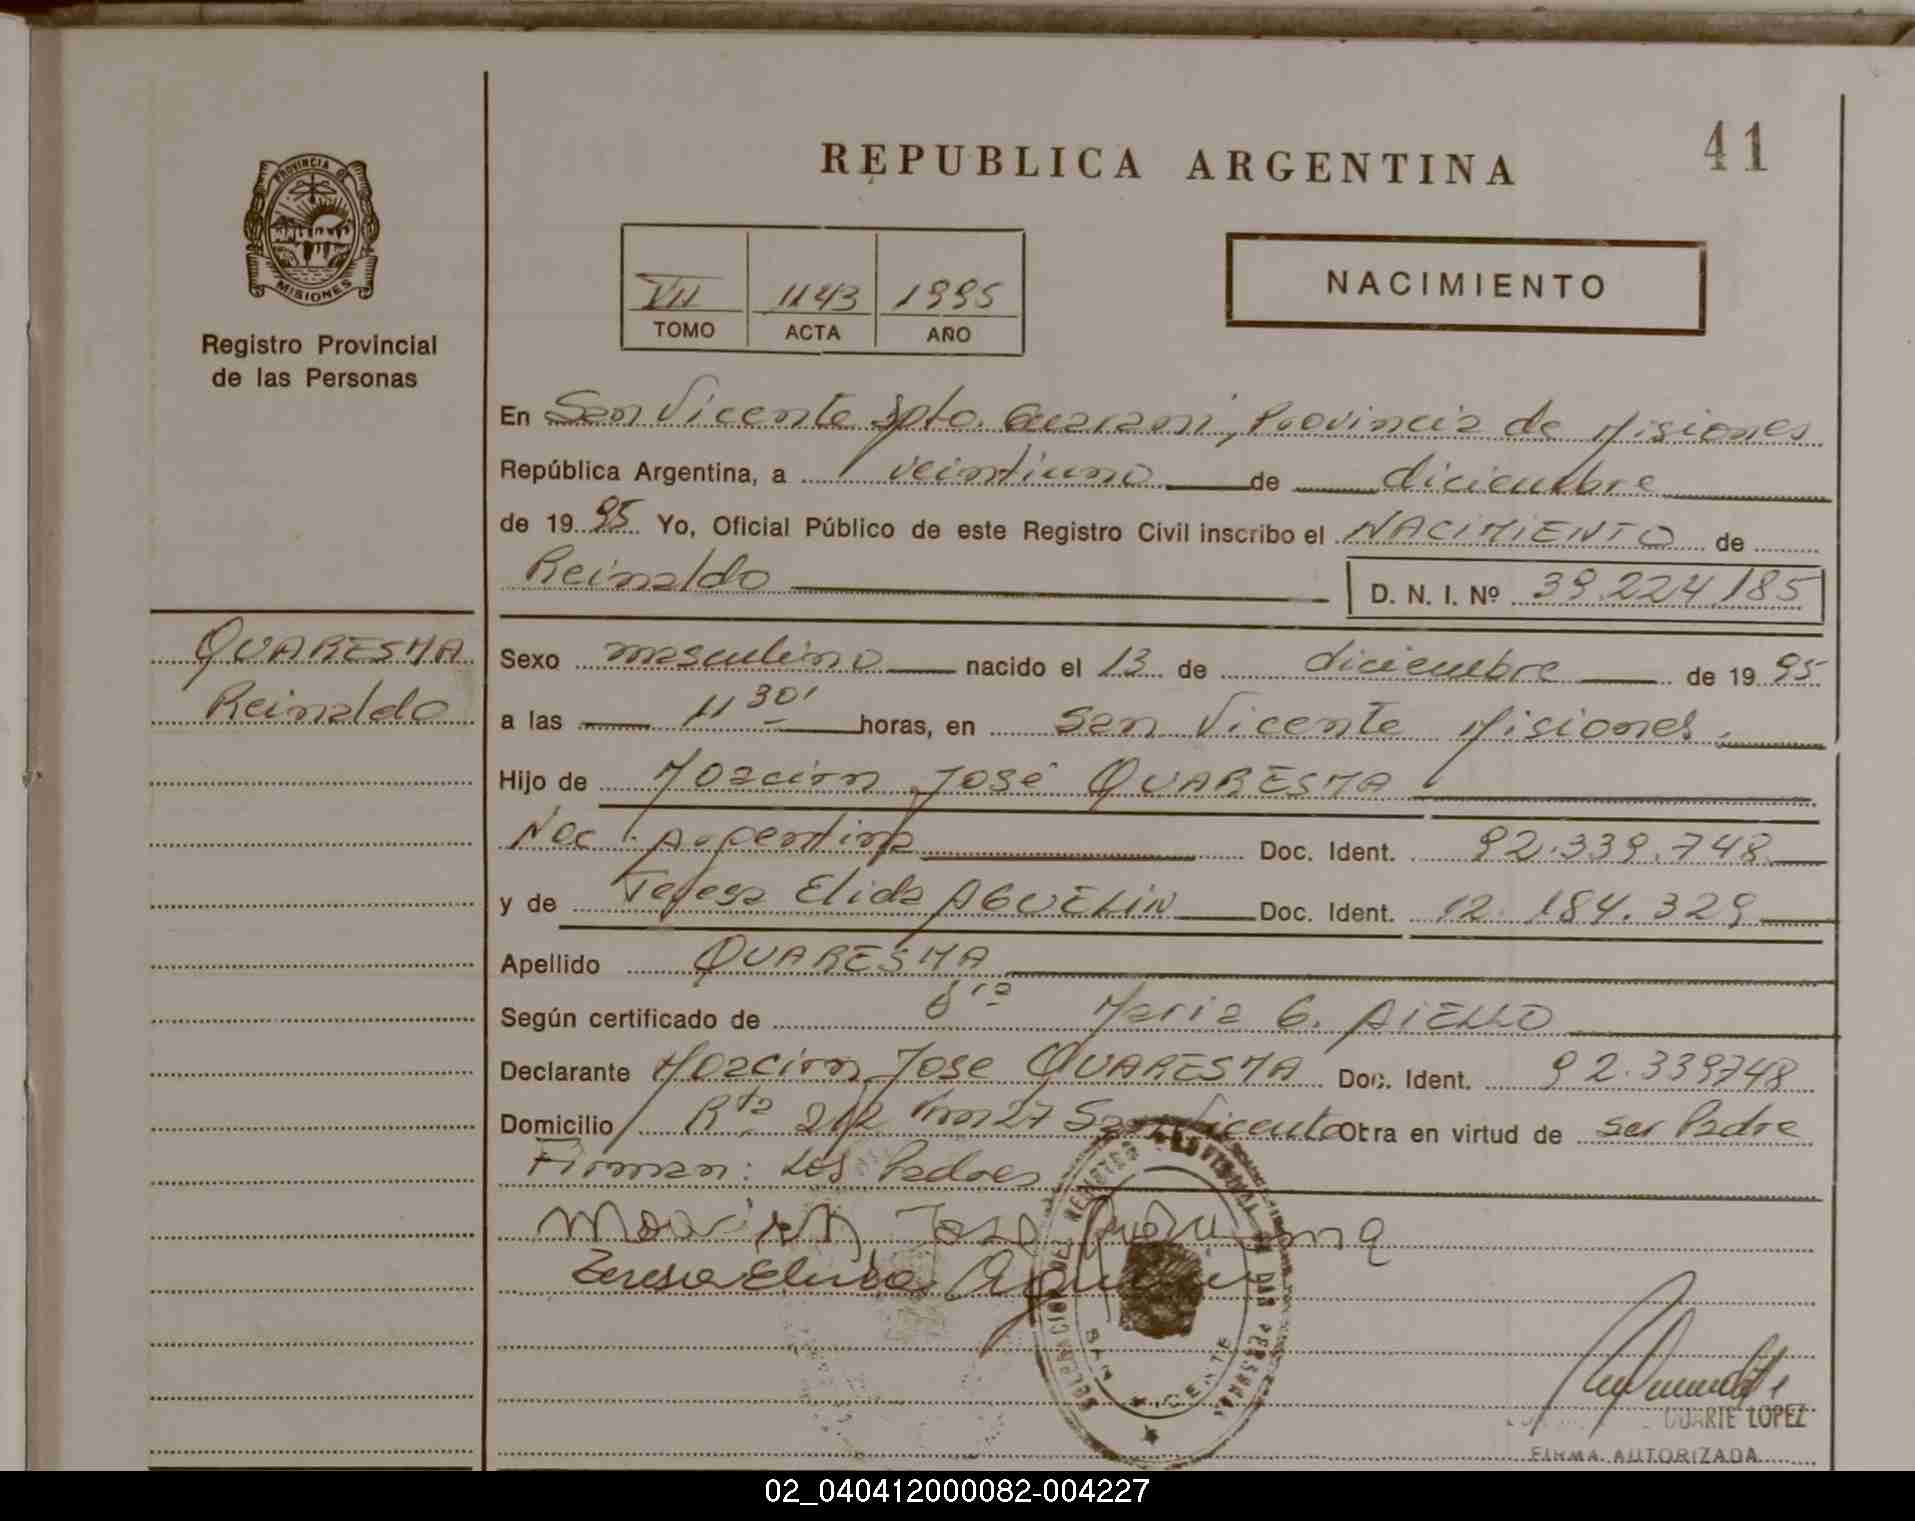 PROVINCIA DE
MISIONES
Registro Provincial
de las Personas
QUARESMA
Reinaldo
41
REPUBLICA ARGENTINA
VII 1143 1995
TOMO ACTA AÑO
NACIMIENTO
En San Vicente Dpto. Guarani, Provincia de Misiones
República Argentina, a veintiuno de diciembre
de 1995 Yo, Oficial Público de este Registro Civil inscribo el NACIMIENTO de
Reinaldo D. N. I. Nº 39.224.185
Sexo masculino nacido el 13 de diciembre de 1995
a las 11 30' horas, en San Vicente Misiones.
Hijo de Moacion José QUARESMA
Nac. Argentina Doc. Ident. 92.339.748
y de Teresa Elida AGUELIN Doc. Ident. 12.184.329
Apellido QUARESMA
Según certificado de Maria G. AIELLO
Declarante Moacion Jose QUARESMA Doc. Ident. 92.339748
Domicilio Rta 212 Km 27 San Vicente Obra en virtud de ser Padre
Firman: Los Padres
Jose
Teresa Elida
SAN VICENTE
DUARTE LOPEZ
FIRMA AUTORIZADA
02_040412000082-004227